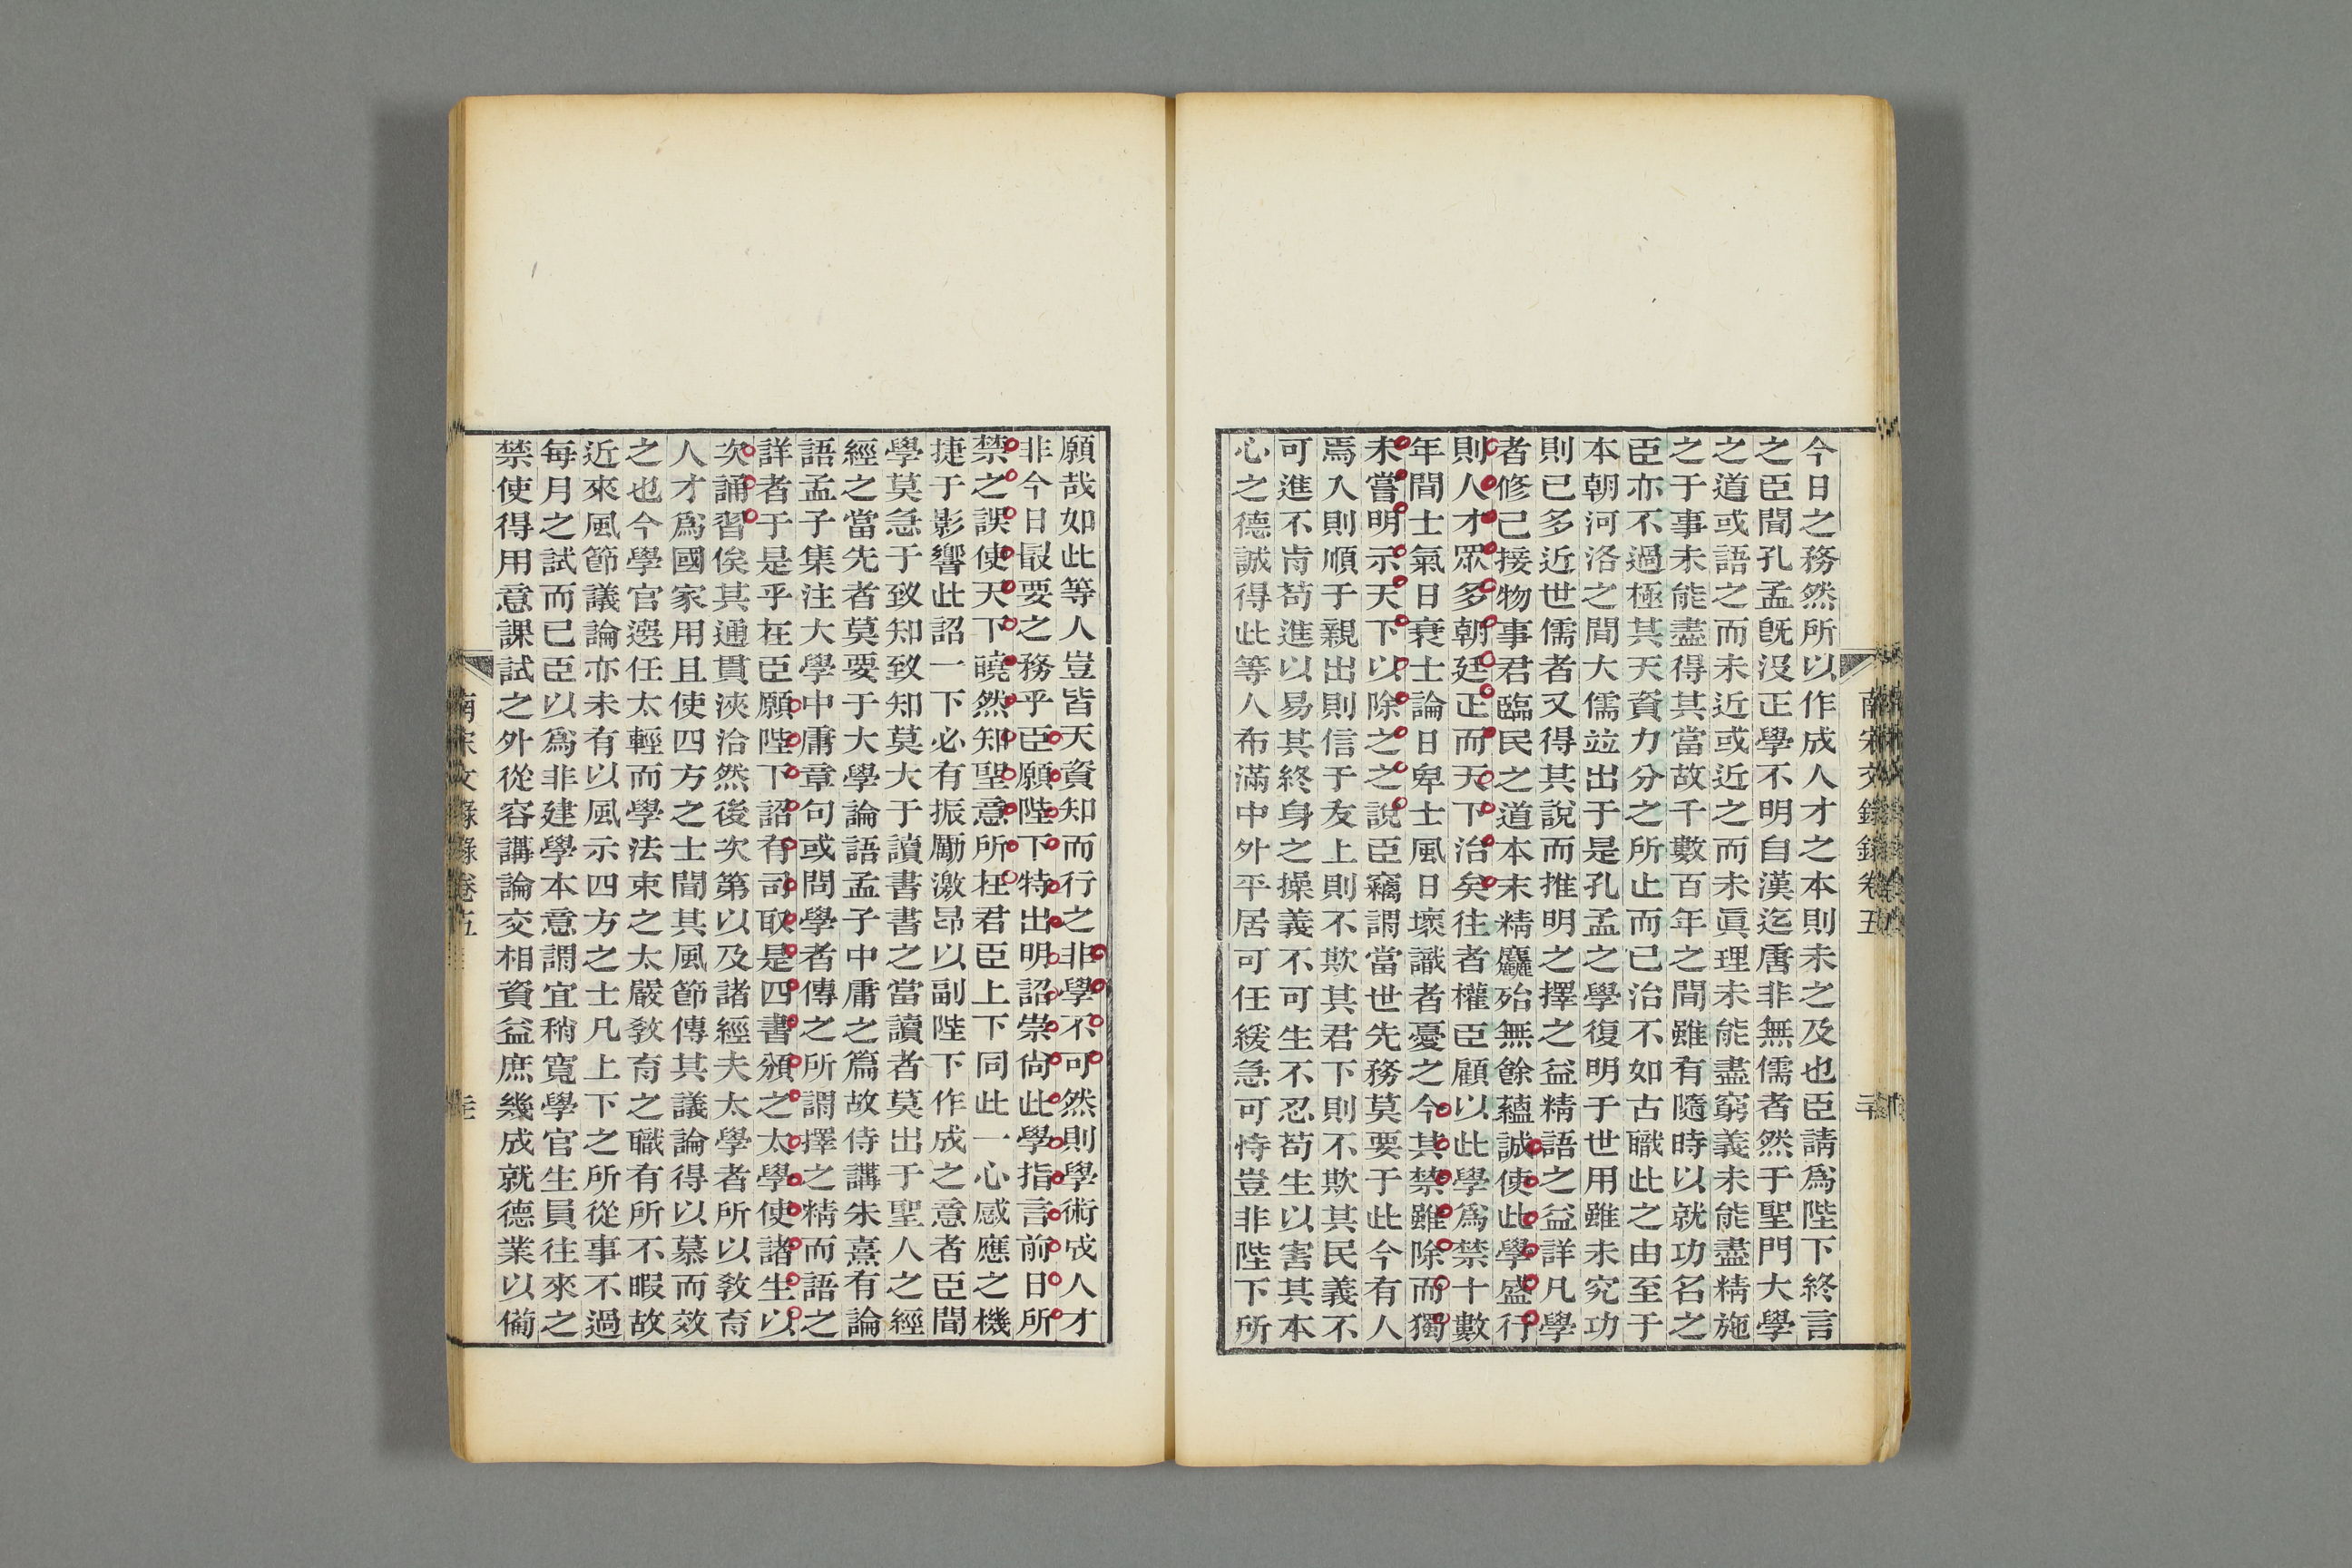 今日之務然所以作成人才之本則未之及也臣請爲陛下終言
之臣聞孔孟旣沒正學不明自漢迄唐非無儒者然于聖門大學
之道或語之而未近或近之而未眞理未能盡窮義未能盡精施
之于事未能盡得其當故千數百年之間雖有隨時以就功名之
臣亦不過極其天資力分之所止而已治不如古職此之由至于
本朝河洛之間大儒竝出于是孔孟之學復明于世用雖未究功
則已多近世儒者又得其說而推明之擇之益精語之益詳凡學
者修己接物事君臨民之道本末精麤殆無餘蘊誠使此學盛行
則人才眾多朝廷正而天下治矣往者權臣顧以此學爲禁十數
年間士氣日衰士論日卑士風日壞識者憂之今其禁雖除而獨
未嘗明示天下以除之之說臣竊謂當世先務莫要于此今有人
焉入則順于親出則信于友上則不欺其君下則不欺其民義不
可進不肯苟進以易其終身之操義不可生不忍苟生以害其本
心之德誠得此等人布滿中外平居可任緩急可恃豈非陛下所
南宋文錄錄卷五
願哉如此等人豈皆天資知而行之非學不可然則學術成人才
非今日最要之務乎臣願陛下特出明詔崇尙此學指言前日所
禁之誤使天下曉然知聖意所在君臣上下同此一心感應之機
捷于影響此詔一下必有振厲激昂以副陛下作成之意者臣聞
學莫急于致知致知莫大于讀書書之當讀者莫出于聖人之經
經之當先者莫要于大學論語孟子中庸之篇故侍講朱熹有論
語孟子集注大學中庸章句或問學者傳之所謂擇之精而語之
詳者于是乎在臣願陛下詔有司取是四書頒之太學使諸生以
次誦習俟其通貫浹洽然後次第以及諸經夫太學者所以敎育
人才爲國家用且使四方之士聞其風節傳其議論得以慕而效
之也今學官選任太輕而學法束之太嚴敎育之職有所不暇故
近來風節議論亦未有以風示四方之士凡上下之所從事不過
每月之試而已臣以爲非建學本意謂宜稍寬學官生員往來之
禁使得用意課試之外從容講論交相資益庶幾成就德業以備
南宋文錄錄卷五